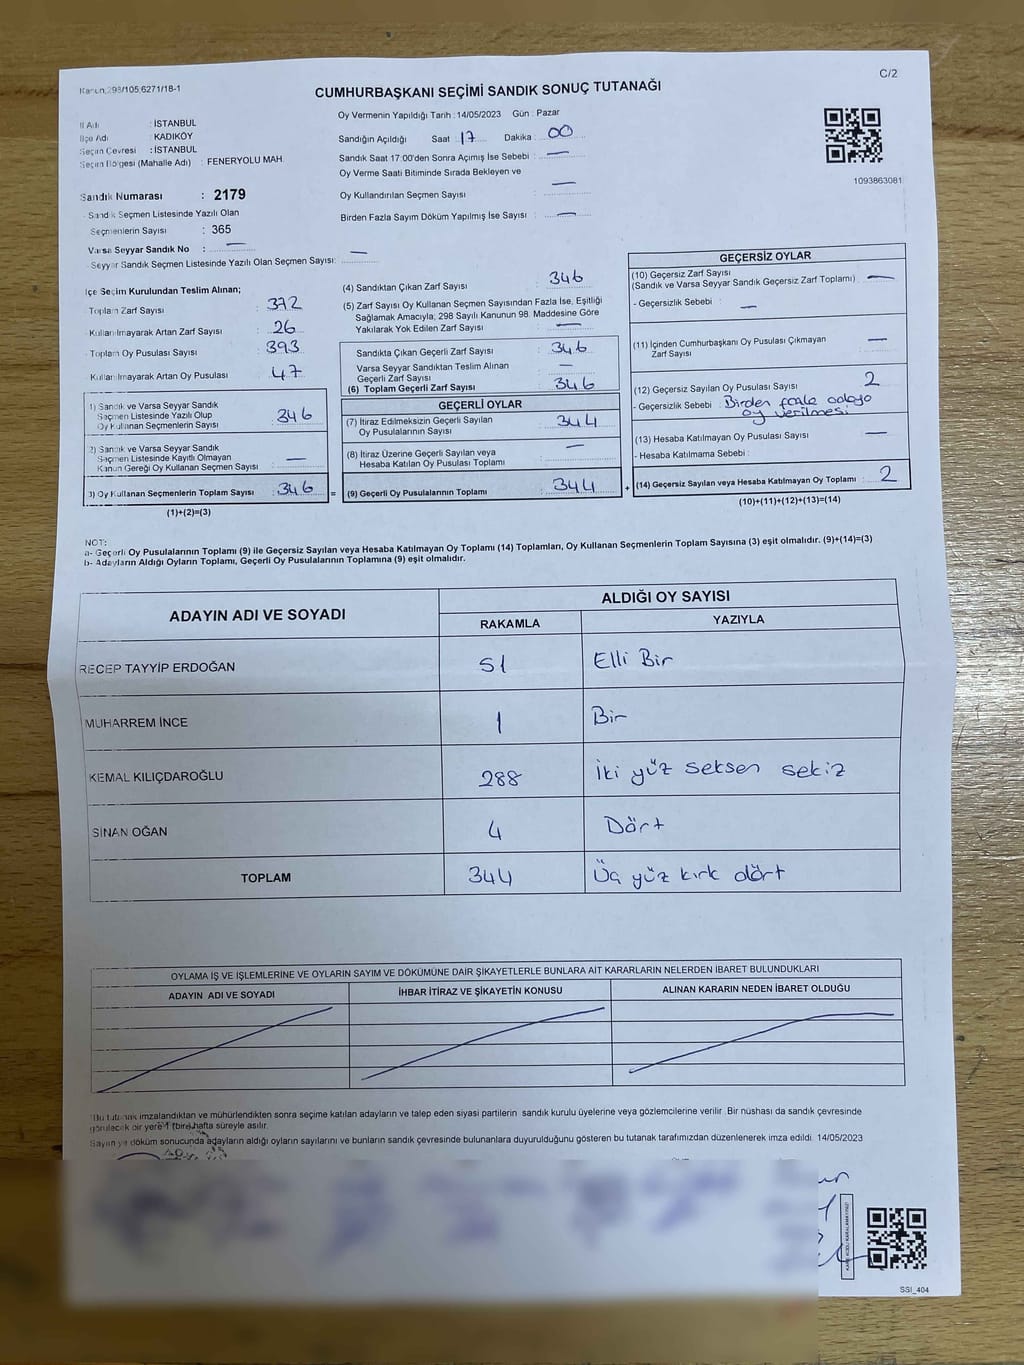 Kanun,298/105,6271/18-1
C/2
CUMHURBAŞKANI SEÇİMİ SANDIK SONUÇ TUTANAĞI
Oy Vermenin Yapıldığı Tarih : 14/05/2023 Gün : Pazar
İl Adı : İSTANBUL
İlçe Adı : KADIKÖY
Seçim Çevresi : İSTANBUL
Seçim Bölgesi (Mahalle Adı) : FENERYOLU MAH.
Sandık Numarası : 2179
- Sandık Seçmen Listesinde Yazılı Olan
Seçmenlerin Sayısı : 365
Varsa Seyyar Sandık No : —
- Seyyar Sandık Seçmen Listesinde Yazılı Olan Seçmen Sayısı: —
Sandığın Açıldığı Saat 17 Dakika : 00
Sandık Saat 17:00'den Sonra Açımış İse Sebebi : —
Oy Verme Saati Bitiminde Sırada Bekleyen ve
Oy Kullandırılan Seçmen Sayısı : —
Birden Fazla Sayım Döküm Yapılmış İse Sayısı : —
1093863081
İlçe Seçim Kurulundan Teslim Alınan;
Toplam Zarf Sayısı : 372
- Kullanılmayarak Artan Zarf Sayısı : 26
- Toplam Oy Pusulası Sayısı : 393
Kullanılmayarak Artan Oy Pusulası : 47
1) Sandık ve Varsa Seyyar Sandık
Seçmen Listesinde Yazılı Olup
Oy Kullanan Seçmenlerin Sayısı : 346
2) Sandık ve Varsa Seyyar Sandık
Seçmen Listesinde Kayıtlı Olmayan
Kanun Gereği Oy Kullanan Seçmen Sayısı : —
3) Oy Kullanan Seçmenlerin Toplam Sayısı : 346 =
(1)+(2)=(3)
(4) Sandıktan Çıkan Zarf Sayısı : 346
(5) Zarf Sayısı Oy Kullanan Seçmen Sayısından Fazla İse, Eşitliği
Sağlamak Amacıyla; 298 Sayılı Kanunun 98. Maddesine Göre
Yakılarak Yok Edilen Zarf Sayısı : —
Sandıkta Çıkan Geçerli Zarf Sayısı : 346
Varsa Seyyar Sandıktan Teslim Alınan
Geçerli Zarf Sayısı : —
(6) Toplam Geçerli Zarf Sayısı : 346
GEÇERLİ OYLAR
(7) İtiraz Edilmeksizin Geçerli Sayılan
Oy Pusulalarının Sayısı : 344
(8) İtiraz Üzerine Geçerli Sayılan veya
Hesaba Katılan Oy Pusulası Toplamı : —
(9) Geçerli Oy Pusulalarının Toplamı : 344 +
GEÇERSİZ OYLAR
(10) Geçersiz Zarf Sayısı
(Sandık ve Varsa Seyyar Sandık Geçersiz Zarf Toplamı) : —
- Geçersizlik Sebebi : —
(11) İçinden Cumhurbaşkanı Oy Pusulası Çıkmayan
Zarf Sayısı : —
(12) Geçersiz Sayılan Oy Pusulası Sayısı : 2
- Geçersizlik Sebebi : Birden fazla adaya
oy verilmesi
(13) Hesaba Katılmayan Oy Pusulası Sayısı : —
- Hesaba Katılmama Sebebi :
(14) Geçersiz Sayılan veya Hesaba Katılmayan Oy Toplamı : 2
(10)+(11)+(12)+(13)=(14)
NOT:
a- Geçerli Oy Pusulalarının Toplamı (9) ile Geçersiz Sayılan veya Hesaba Katılmayan Oy Toplamı (14) Toplamları, Oy Kullanan Seçmenlerin Toplam Sayısına (3) eşit olmalıdır. (9)+(14)=(3)
b- Adayların Aldığı Oyların Toplamı, Geçerli Oy Pusulalarının Toplamına (9) eşit olmalıdır.
ADAYIN ADI VE SOYADI ALDIĞI OY SAYISI
RAKAMLA YAZIYLA
RECEP TAYYİP ERDOĞAN 51 Elli Bir
MUHARREM İNCE 1 Bir
KEMAL KILIÇDAROĞLU 288 İki yüz seksen sekiz
SİNAN OĞAN 4 Dört
TOPLAM 344 Üç yüz kırk dört
OYLAMA İŞ VE İŞLEMLERİNE VE OYLARIN SAYIM VE DÖKÜMÜNE DAİR ŞİKAYETLERLE BUNLARA AİT KARARLARIN NELERDEN İBARET BULUNDUKLARI
ADAYIN ADI VE SOYADI İHBAR İTİRAZ VE ŞİKAYETİN KONUSU ALINAN KARARIN NEDEN İBARET OLDUĞU
Bu tutanak imzalandıktan ve mühürlendikten sonra seçime katılan adayların ve talep eden siyasi partilerin sandık kurulu üyelerine veya gözlemcilerine verilir. Bir nüshası da sandık çevresinde
görülecek bir yere 1 (bir) hafta süreyle asılır.
Sayım ve döküm sonucunda adayların aldığı oyların sayılarını ve bunların sandık çevresinde bulunanlara duyurulduğunu gösteren bu tutanak tarafımızdan düzenlenerek imza edildi. 14/05/2023
KARE KODU KARALAMAYINIZ!
SSI_404